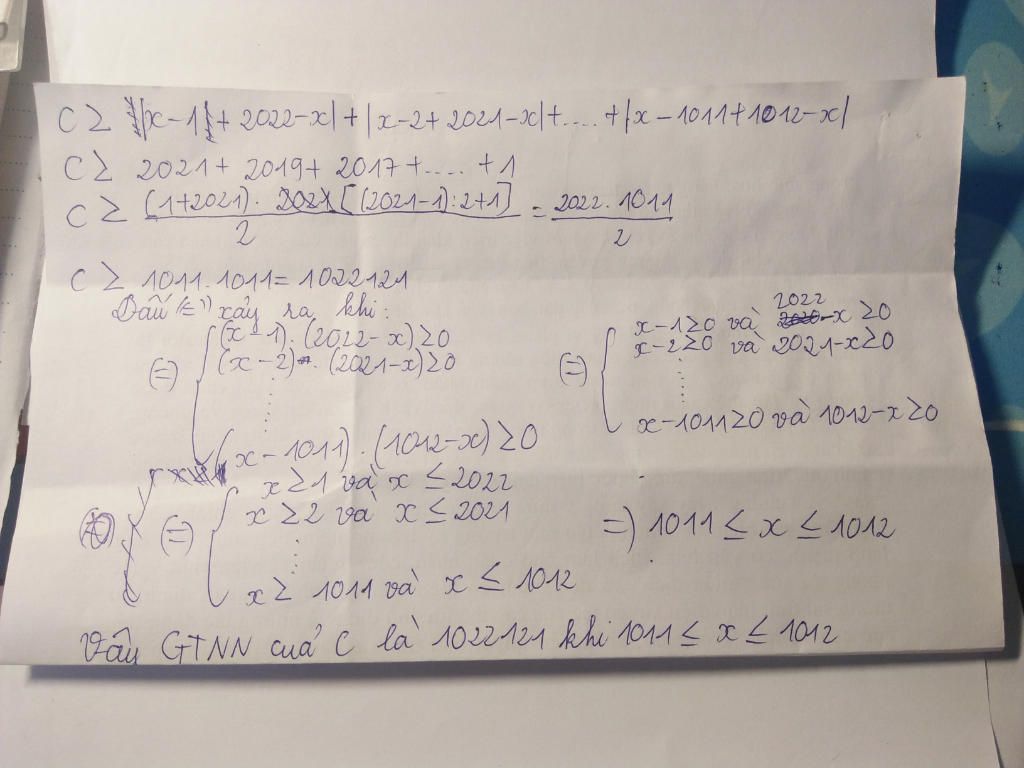 C ≥ |x-1+2022-x|+|x-2+2021-x|+....+|x-1011+1012-x|
C ≥ 2021+2019+2017+....+1
C ≥ (1+2021).[(2021-1):2+1] / 2 = 2022.1011 / 2
C ≥ 1011.1011=1022121
Dấu "=" xảy ra khi:
(=) { (x-1).(2022-x)≥0
(x-2).(2021-x)≥0
⋮
(x-1011).(1012-x)≥0
(=) { x-1≥0 và 2022-x≥0
x-2≥0 và 2021-x≥0
⋮
x-1011≥0 và 1012-x≥0
(=) { x≥1 và x≤2022
x≥2 và x≤2021
⋮
x≥1011 và x≤1012
=) 1011≤x≤1012
Vậy GTNN của C là 1022121 khi 1011≤x≤1012